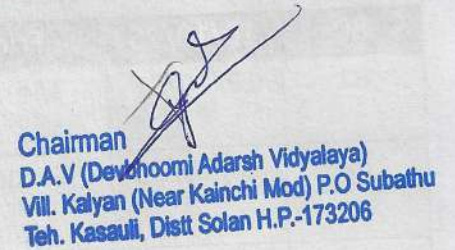 Chairman
D.A.V (Devbhoomi Adarsh Vidyalaya)
Vill. Kalyan (Near Kainchi Mod) P.O Subathu
Teh. Kasauli, Distt Solan H.P.-173206